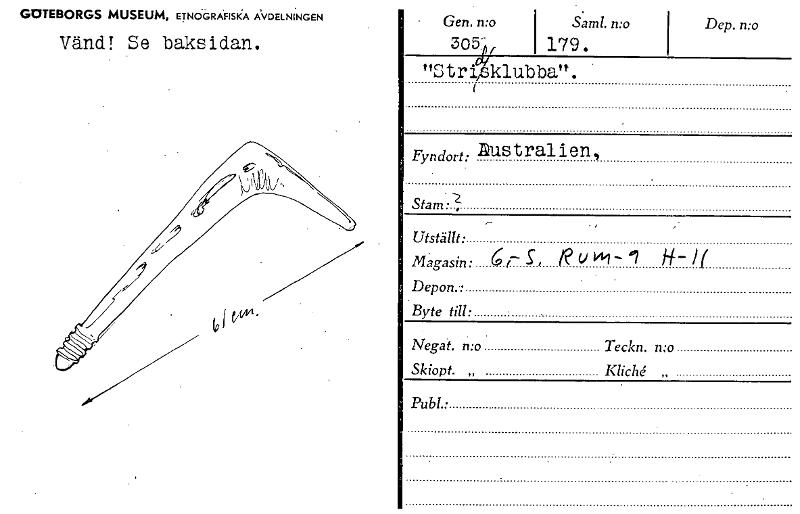 GÖTEBORGS MUSEUM, ETNOGRAFISKA AVDELNINGEN
Vänd! Se baksidan.
61 cm.
Gen. n:o
305
Saml. n:o
179.
Dep. n:o
"Stridsklubba".
Fyndort: Australien,
Stam: ?
Utställt:
Magasin: G.-S. Rum-9 H-11
Depon.:
Byte till:
Negat. n:o Teckn. n:o
Skiopt. „ Kliché „
Publ.: